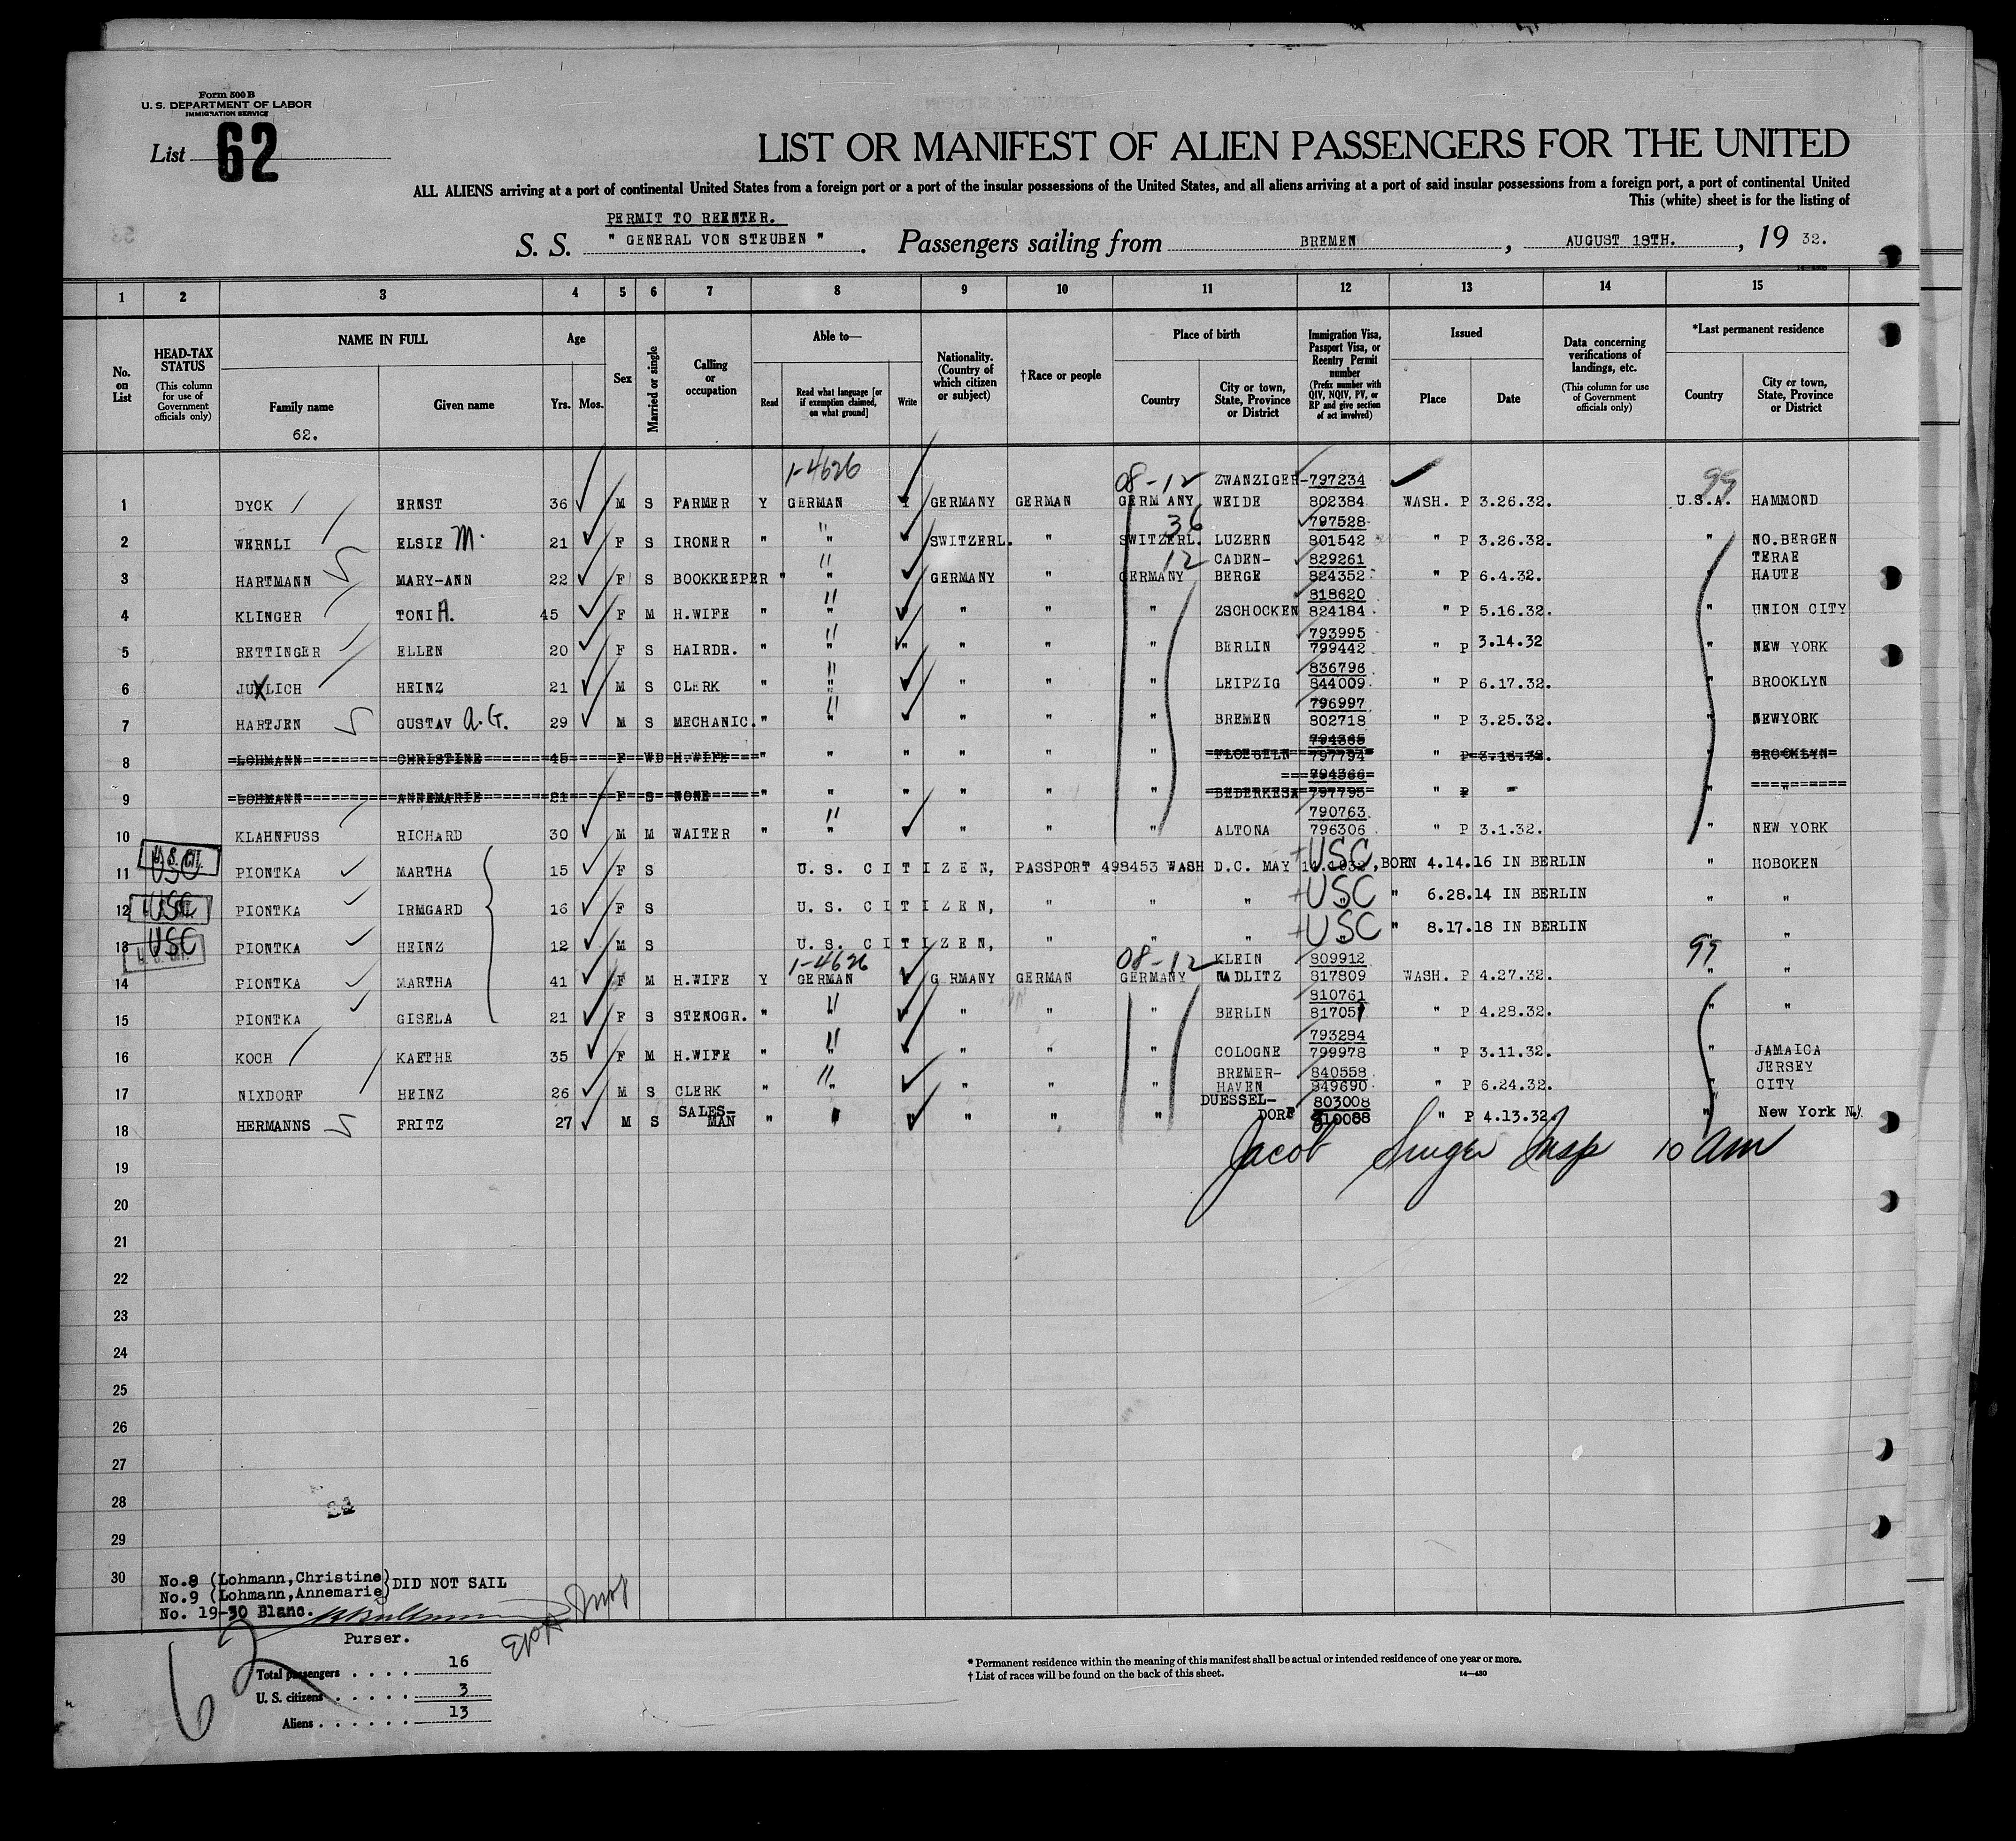 Form 500 B
U. S. DEPARTMENT OF LABOR
IMMIGRATION SERVICE
List 62
LIST OR MANIFEST OF ALIEN PASSENGERS FOR THE UNITED
ALL ALIENS arriving at a port of continental United States from a foreign port or a port of the insular possessions of the United States, and all aliens arriving at a port of said insular possessions from a foreign port, a port of continental United
This (white) sheet is for the listing of
PERMIT TO REENTER.
S. S. " GENERAL VON STEUBEN ". Passengers sailing from BREMEN, AUGUST 18TH., 19 32.
1 2 3 4 5 6 7 8 9 10 11 12 13 14 15
No. on List
HEAD-TAX STATUS (This column for use of Government officials only)
NAME IN FULL
Family name
Given name
62.
Age
Yrs. Mos.
Sex
Married or single
Calling or occupation
Able to—
Read
Read what language [or if exemption claimed, on what ground]
Write
Nationality. (Country of which citizen or subject)
† Race or people
Place of birth
Country
City or town, State, Province or District
Immigration Visa, Passport Visa, or Reentry Permit number (Prefix number with QIV, NQIV, PV, or RP and give section of act involved)
Issued
Place
Date
Data concerning verifications of landings, etc. (This column for use of Government officials only)
*Last permanent residence
Country
City or town, State, Province or District
1-4626 08-12 ZWANZIGER- 797234 99
1 DYCK ERNST 36 M S FARMER Y GERMAN Y GERMANY GERMAN GERMANY WEIDE 802384 WASH. P 3.26.32. U.S.A. HAMMOND
" 36 797528
2 WERNLI ELSIE M. 21 F S IRONER " " " SWITZERL. " SWITZERL. LUZERN 801542 " P 3.26.32. " NO.BERGEN
" 12 CADEN- 829261 TERAE
3 HARTMANN MARY-ANN 22 F S BOOKKEEPER " " GERMANY " GERMANY BERGE 824352 " P 6.4.32. " HAUTE
" 818620
4 KLINGER TONI A. 45 F M H.WIFE " " " " " " ZSCHOCKEN 824184 " P 5.16.32. " UNION CITY
" 793995
5 BETTINGER ELLEN 20 F S HAIRDR. " " " " " " BERLIN 799442 " P 3.14.32 " NEW YORK
" 836796
6 JUXLICH HEINZ 21 M S CLERK " " " " " LEIPZIG 844009 " P 6.17.32. " BROOKLYN
" 796997
7 HARTJEN GUSTAV A.G. 29 M S MECHANIC. " " " " " " BREMEN 802718 " P 3.25.32. " NEWYORK
794365
8 LOHMANN CHRISTINE 45 F WD H.WIFE " " " " " " FLOEGELN 797794 " P 3.16.32. " BROOKLYN
794366
9 LOHMANN ANNEMARIE 21 F S NONE " " " " " " BEDERKESA 797795 " P " " "
" 790763
10 KLAHNFUSS RICHARD 30 M M WAITER " " " " " ALTONA 796306 " P 3.1.32. " NEW YORK
USC
11 PIONTKA MARTHA 15 F S U. S. CITIZEN, PASSPORT 498453 WASH D.C. MAY 14.1932, BORN 4.14.16 IN BERLIN " HOBOKEN
USC
12 PIONTKA IRMGARD 16 F S U. S. CITIZEN, " " " USC " 6.28.14 IN BERLIN " "
USC
13 PIONTKA HEINZ 12 M S U. S. CITIZEN, " " " USC " 8.17.18 IN BERLIN " "
1-4626 08-12 KLEIN 809912 99
14 PIONTKA MARTHA 41 F M H.WIFE Y GERMAN G RMANY GERMAN GERMANY NADLITZ 817809 WASH. P 4.27.32. " "
" 810761
15 PIONTKA GISELA 21 F S STENOGR. " " " " " BERLIN 817051 " P 4.28.32. " "
" 793284
16 KOCH KAETHE 35 F M H.WIFE " " " " " COLOGNE 799978 " P 3.11.32. " JAMAICA
" BREMER- 840558 JERSEY
17 NIXDORF HEINZ 26 M S CLERK " " " " " HAVEN 849690 " P 6.24.32. " CITY
SALES- DUESSEL- 803008
18 HERMANNS FRITZ 27 M S MAN " " " " " " DORF 810088 " P 4.13.32 " New York N.Y.
19 Jacob Singer Insp 10 am
20
21
22
23
24
25
26
27
28
29
30
No.8 (Lohmann,Christine)
No.9 (Lohmann,Annemarie) DID NOT SAIL
No. 19-30 Blanc.
Purser.
62
Total passengers . . . . 16
U. S. citizens . . . . . 3
Aliens . . . . . . 13
* Permanent residence within the meaning of this manifest shall be actual or intended residence of one year or more.
† List of races will be found on the back of this sheet. 14—430